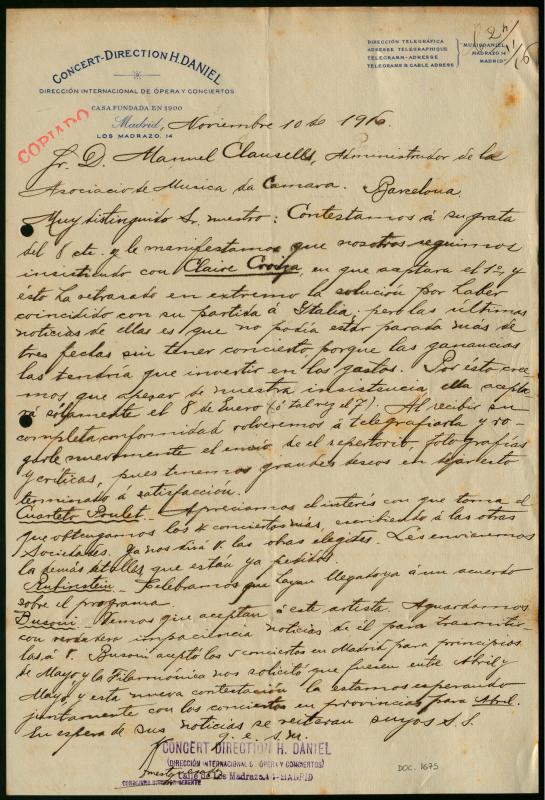 CONCERT-DIRECTION H. DANIEL
DIRECCIÓN INTERNACIONAL DE ÓPERA Y CONCIERTOS
CASA FUNDADA EN 1900
Madrid, Noviembre 10 de 1916
LOS MADRAZO, 14
COPIADO
DIRECCIÓN TELEGRÁFICA
ADRESSE TELEGRAPHIQUE
TELEGRAMM-ADRESSE
TELEGRAMS & CABLE ADRESS
MUSIDANIEL
MADRAZO 14
MADRID
Sr. D. Manuel Clausells, Administrador de la
Asociacio de Musica da Camara. Barcelona.
Muy distinguido Sr. nuestro: Contestamos á su grata
del 8 cte. y le manifestamos que nosotros seguimos
insistiendo con Claire Croiza, en que aceptara el 1º, y
ésto ha retrasado en extremo la solución por haber
coincidido con su partida á Italia; pero las últimas
noticias de ellas es que no podía estar parada más de
tres fechas sin tener concierto porque las ganancias
las tendría que invertir en los gastos. Por ésto cree-
mos que apesar de nuestra insistencia, ella acepta-
rá solamente el 8 de Enero (ó tal vez el 7). Al recibir su
completa conformidad volveremos á telegrafiarla y ro-
garle nuevamente el envío de el repertorio, fotografías
y críticas, pues tenemos grandes deseos en dejar esto
terminado á satisfacción.
Cuarteto Poulet. Apreciamos el interés con que toma el
que obtengamos los 4 conciertos más, escribiendo á las otras
Sociedades. Ya nos dirá V. las obras elegidas. Les enviaremos
los demás detalles que están ya pedidos.
Rubinstein. Celebramos que hayan llegado ya á un acuerdo
sobre el programa.
Busoni. Vemos que aceptan á este artista. Aguardamos
con verdadera impaciencia noticias de él para trasmitir-
las á V. Busoni aceptó los conciertos en Madrid para principios
de Mayo y la Filarmónica nos solicitó que fuesen entre Abril y
Mayo, y esta nueva contestación la estamos esperando
juntamente con los conciertos en provincias para Abril.
En espera de sus noticias se reiteran suyos S.S.
q. e. s. m.
CONCERT DIRECTION H. DANIEL
(DIRECCIÓN INTERNACIONAL D. ÓPERA Y CONCIERTOS)
Calle de Los Madrazo, 14-MADRID
DOC. 1675